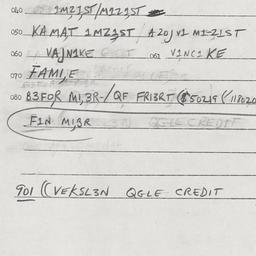 040 1MZ1ST/M1Z1ST
050 KAMAT 1MZ3ST / AZOJV1 M1-Z1ST
060 VAJN1KE 061 V1NC1KE
070 FAMI,E
080 B3FOR MI,3R-/QF FRI3RT ($50215 (/11802
F1N MI3R
901 ((VEKSL3N QGLE CREDIT